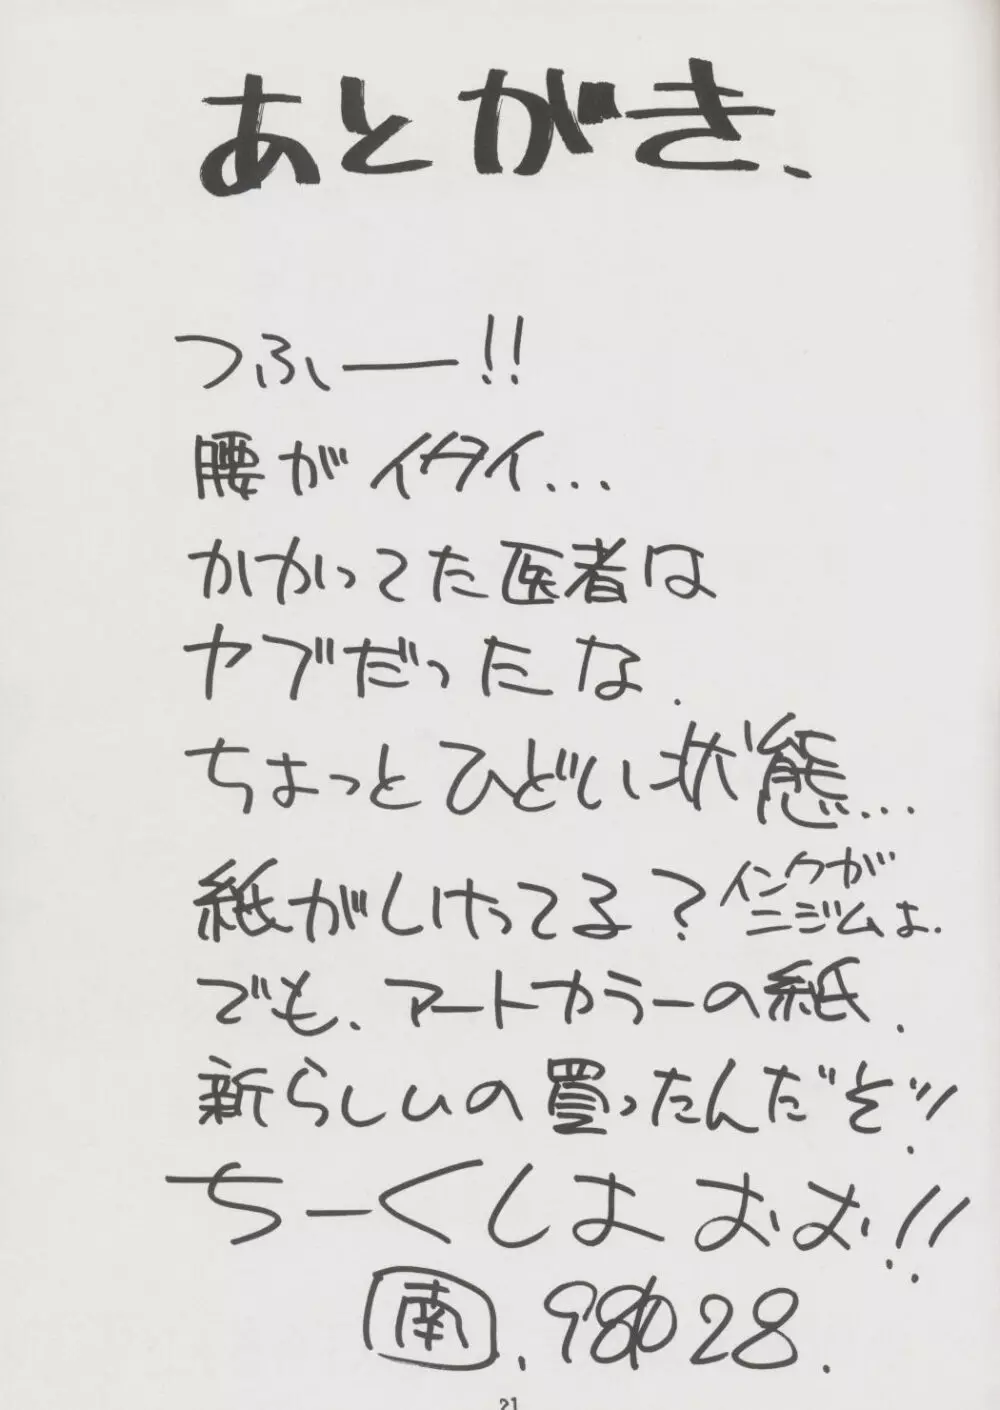 あとがき、
つふー!!
腰がイタイ...
かかってた医者は
ヤブだったな.
ちょっとひどい状態...
紙がしけってる?インクが
ニジムよ.
でも、アートカラーの紙.
新らしいの買ったんだぞ!!
ちーくしょおお!!
南.98 28.
21